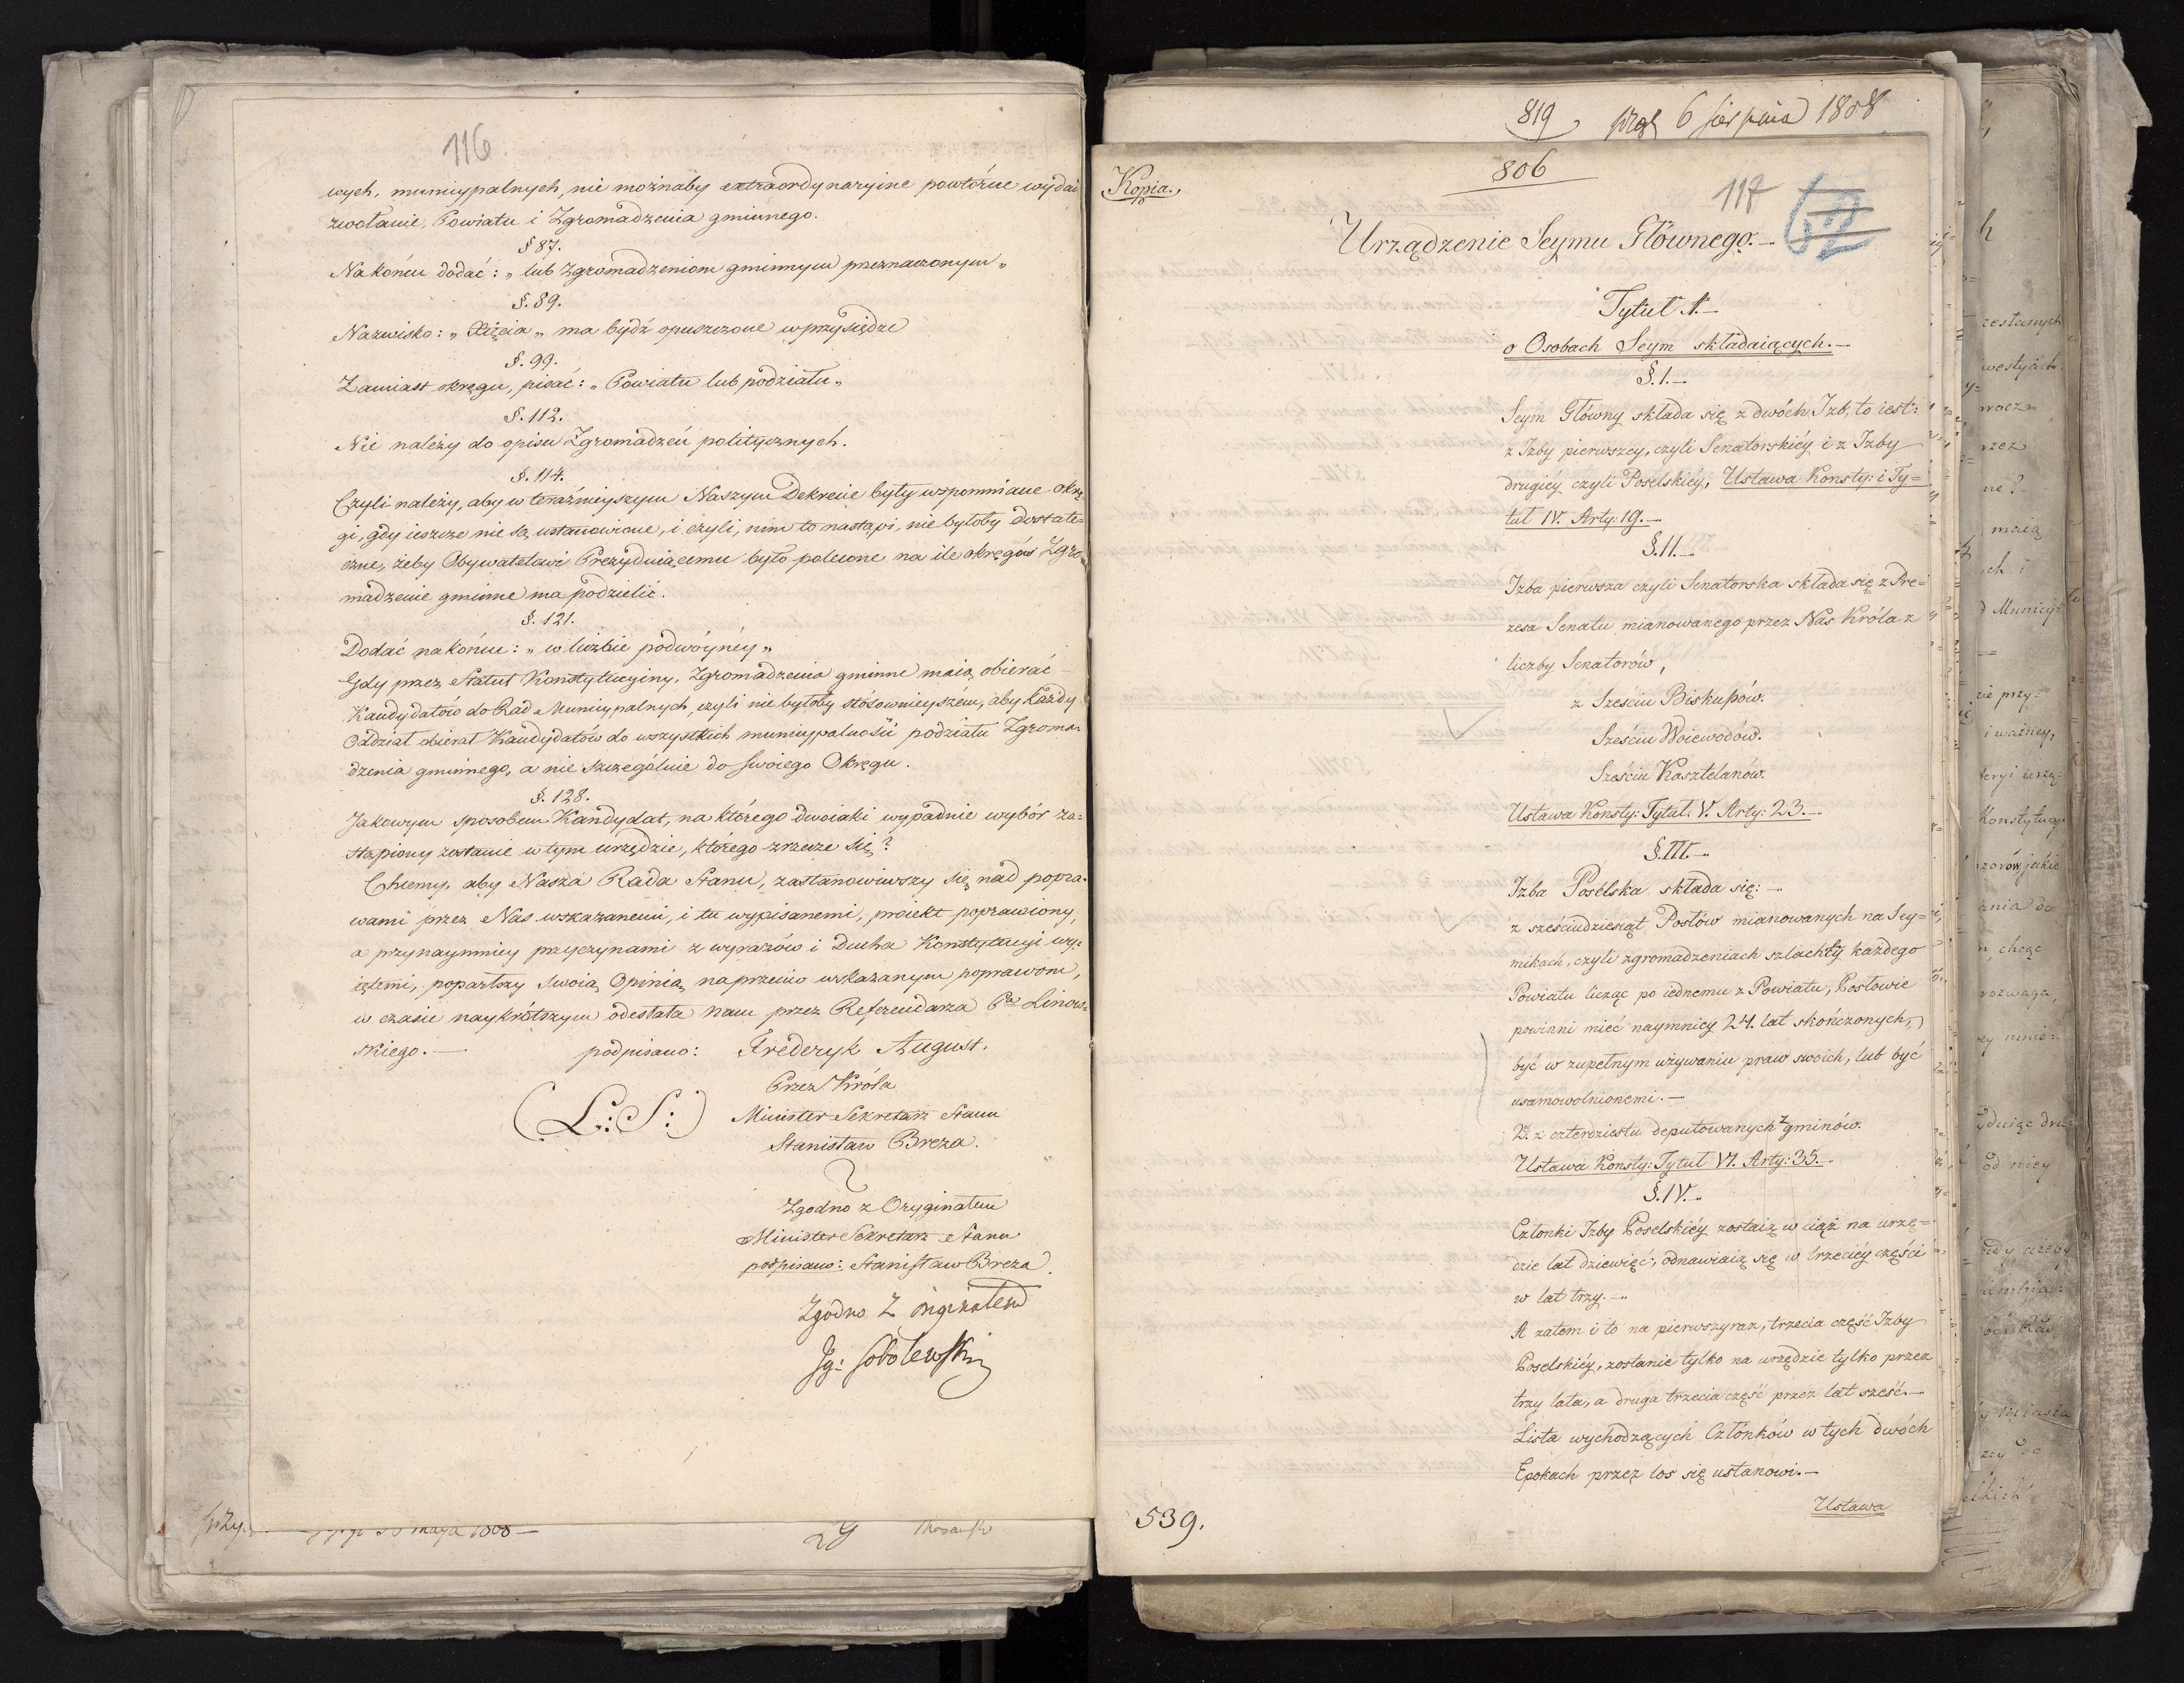 116
wych, municypalnych, nie możnaby extraordynaryine powtórne wydać
zwołanie, Powiatu i Zgromadzenia gminnego.
§ 87.
Na końcu dodać: „ lub Zgromadzeniom gminnym przeznaczonym „
§. 89.
Nazwisko: „ Xięcia „ ma bydź opuszczone w przysiędze
§. 99.
Zamiast okręgu, pisać: „ Powiatu lub podziału „
§. 112.
Nie należy do opisu Zgromadzeń politycznych.
§. 114.
Czyli należy, aby w teraźnieyszym Naszym Dekrecie były wspomniane okrę
gi, gdy ieszcze nie są ustanowione, i czyli, nim to nastąpi, nie byłoby dostate=
czne, żeby Obywatelowi Prezyduiącemu było polecone na ile okręgów Zgro=
madzenie gminne ma podzielić.
§. 121.
Dodać na końcu: „ w liczbie podwóyney „
Gdy przez Statut Konstytucyiny, Zgromadzenia gminne maią obierać
Kandydatów do Rad Municypalnych, czyli nie byłoby stósownieyszém, aby każdy
Oddział obierał Kandydatów do wszystkich municypalności podziału Zgroma=
dzenia gminnego, a nie szczególnie do swoiego Okręgu.
§. 128.
Jakowym sposobem Kandydat, na którego dwoiaki wypadnie wybór za=
stąpiony zostanie w tym urzędzie, którego zrzecze się?
Chcemy, aby Nasza Rada Stanu, zastanowiwszy się nad popra=
wami przez Nas wskazanemi, i tu wypisanemi, proiekt poprawiony,
a przynaymniey przyczynami z wyrazów i Ducha Konstytucyi wy=
iętemi, poparłszy swoią Opinią naprzeciw wskazanym poprawom,
w czasie naykrótszym odesłała nam przez Referendarza Pa Linow=
skiego. —
podpisano: Fryderyk August.
Przez Króla
(L: S:) Minister Sekretarz Stanu
Stanisław Breza.
Zgodno z Oryginałem
Minister Sekretarz Stanu
podpisano: Stanisław Breza.
Zgodno z oryginałem
Jg: Sobolewski
maja 1808 —
29
819
6 Sierpnia 1808
806
Kopia.
117
Urządzenie Seymu Głównego. —
Tytuł 1. —
o Osobach Seym składaiących. —
§. I. —
Seym Główny składa się z dwóch Izb, to iest:
z Izby pierwszey, czyli Senatorskiéy i z Izby
drugiéy czyli Poselskiéy, Ustawa Konsty: i Ty=
tuł IV. Arty: 19. —
§. II. —
Izba pierwsza czyli Senatorska składa się z Pre=
zesa Senatu mianowanego przez Nas Króla z
liczby Senatorów,
z Sześciu Biskupów.
Sześciu Woiewodów.
Sześciu Kasztelanów.
Ustawa Konsty: Tytuł: V. Arty: 23. —
§. III. —
Izba Poselska składa się: —
z sześciudziesiąt Posłów mianowanych na Sey=
mikach, czyli zgromadzeniach szlachty każdego
Powiatu licząc po iednemu z Powiatu, Posłowie
powinni mieć naymniey 24. lat skończonych,
być w zupełnym używaniu praw swoich, lub być
usamowolnionemi. —
2. z czterdziestu deputowanych z gminów.
Ustawa Konsty: Tytuł VI. Arty: 35. —
§. IV. —
Członki Izby Poselskiéy zostaią w ciąż na urzę=
dzie lat dziewięć; odnawiaią się w trzeciéy części
w lat trzy. —
A zatem i to na pierwszy raz, trzecia część Izby
Poselskiéy, zostanie tylko na urzędzie tylko przez
trzy lata, a druga trzecia część przez lat sześć. —
Lista wychodzących Członków w tych dwóch
Epokach przez los się ustanowi. —
Ustawa
539.